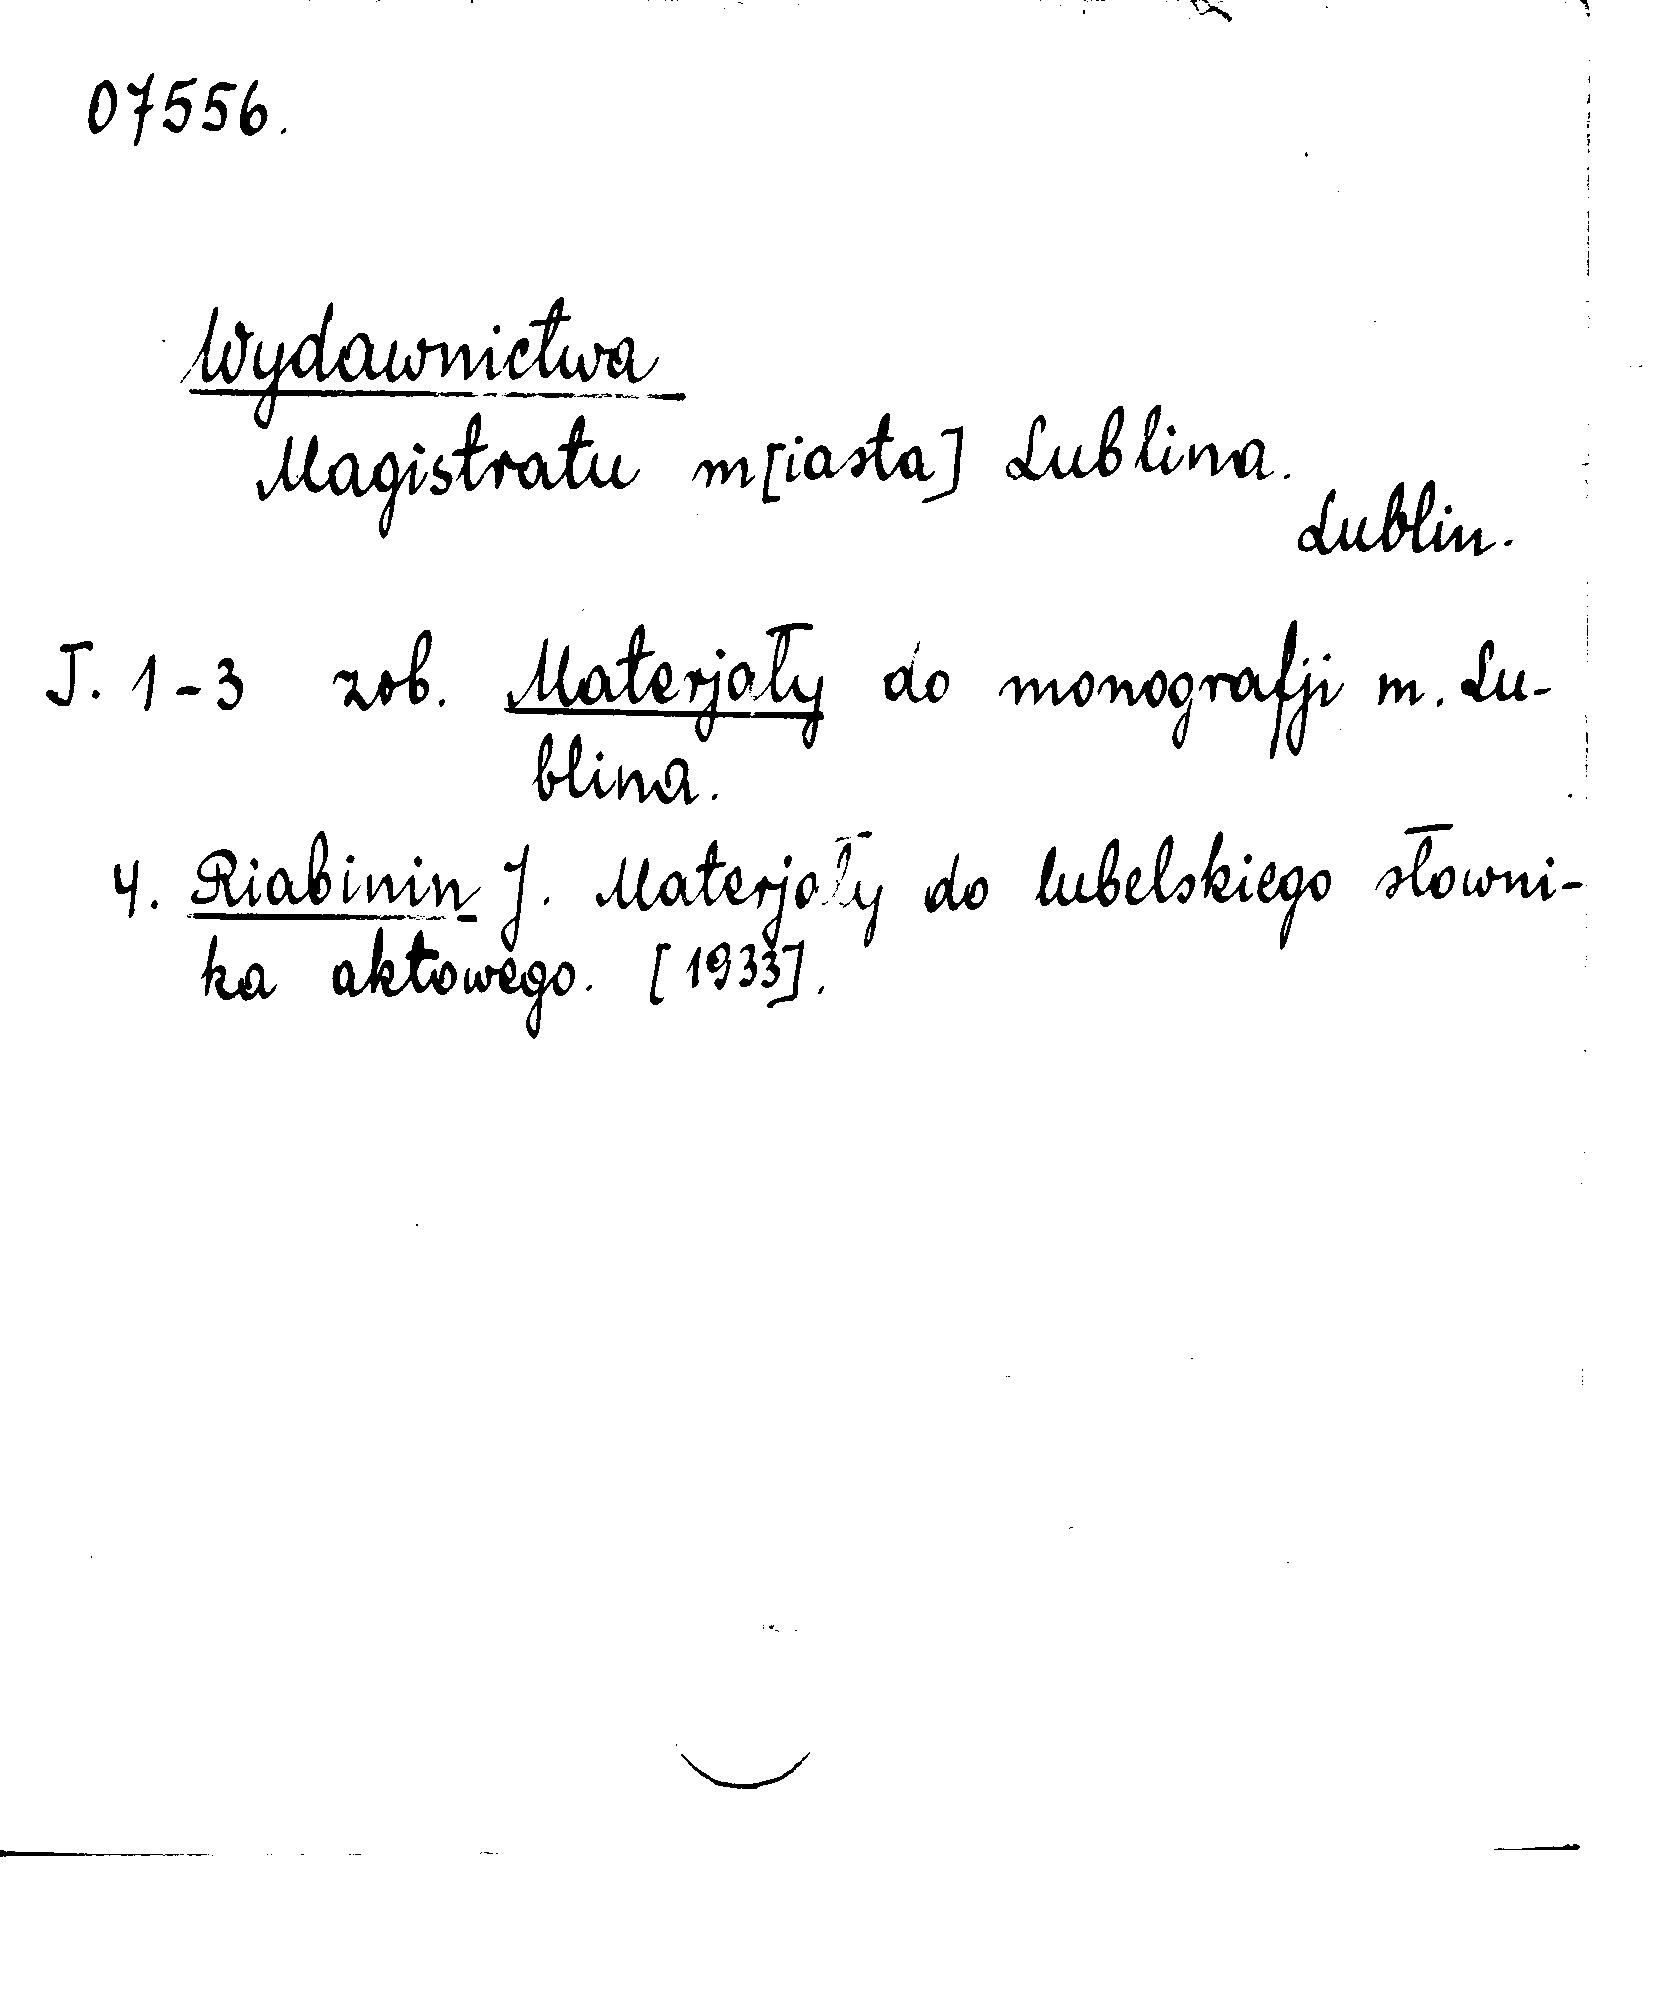 07556.
Wydawnictwa
Magistratu m[iasta] Lublina.
Lublin.
T. 1-3 zob. Materjały do monografji m. Lu-
blina.
4. Riabinin J. Materjały do lubelskiego słowni-
ka aktowego. [1933].